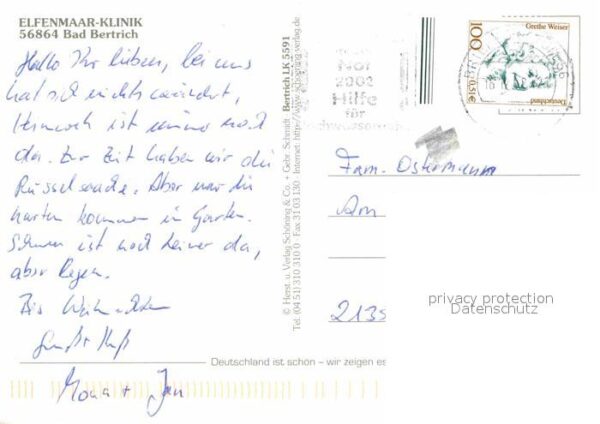 ELFENMAAR-KLINIK
56864 Bad Bertrich
Hallo Ihr Lieben, bei uns
hat sich nichts verändert,
ist immer noch
da. Zur Zeit haben wir die
Aber nur die
harten kommen in Garten.
Schnee ist noch keiner da,
aber Regen.
Bis Weihnachten
Gruß + Kuß
Mona + Jan
© Herst. u. Verlag Schöning & Co. + Gebr. Schmidt · Bertrich LK 5591
Tel. (04 51) 310 310 0 · Fax 31 03 130 · Internet: http://www.schoening-verlag.de
Deutschland ist schön – wir zeigen es
2002
Hilfe
für
100
Grethe Weiser
Deutschland
0,51€
Fam. Ostermann
Am
2135
privacy protection
Datenschutz